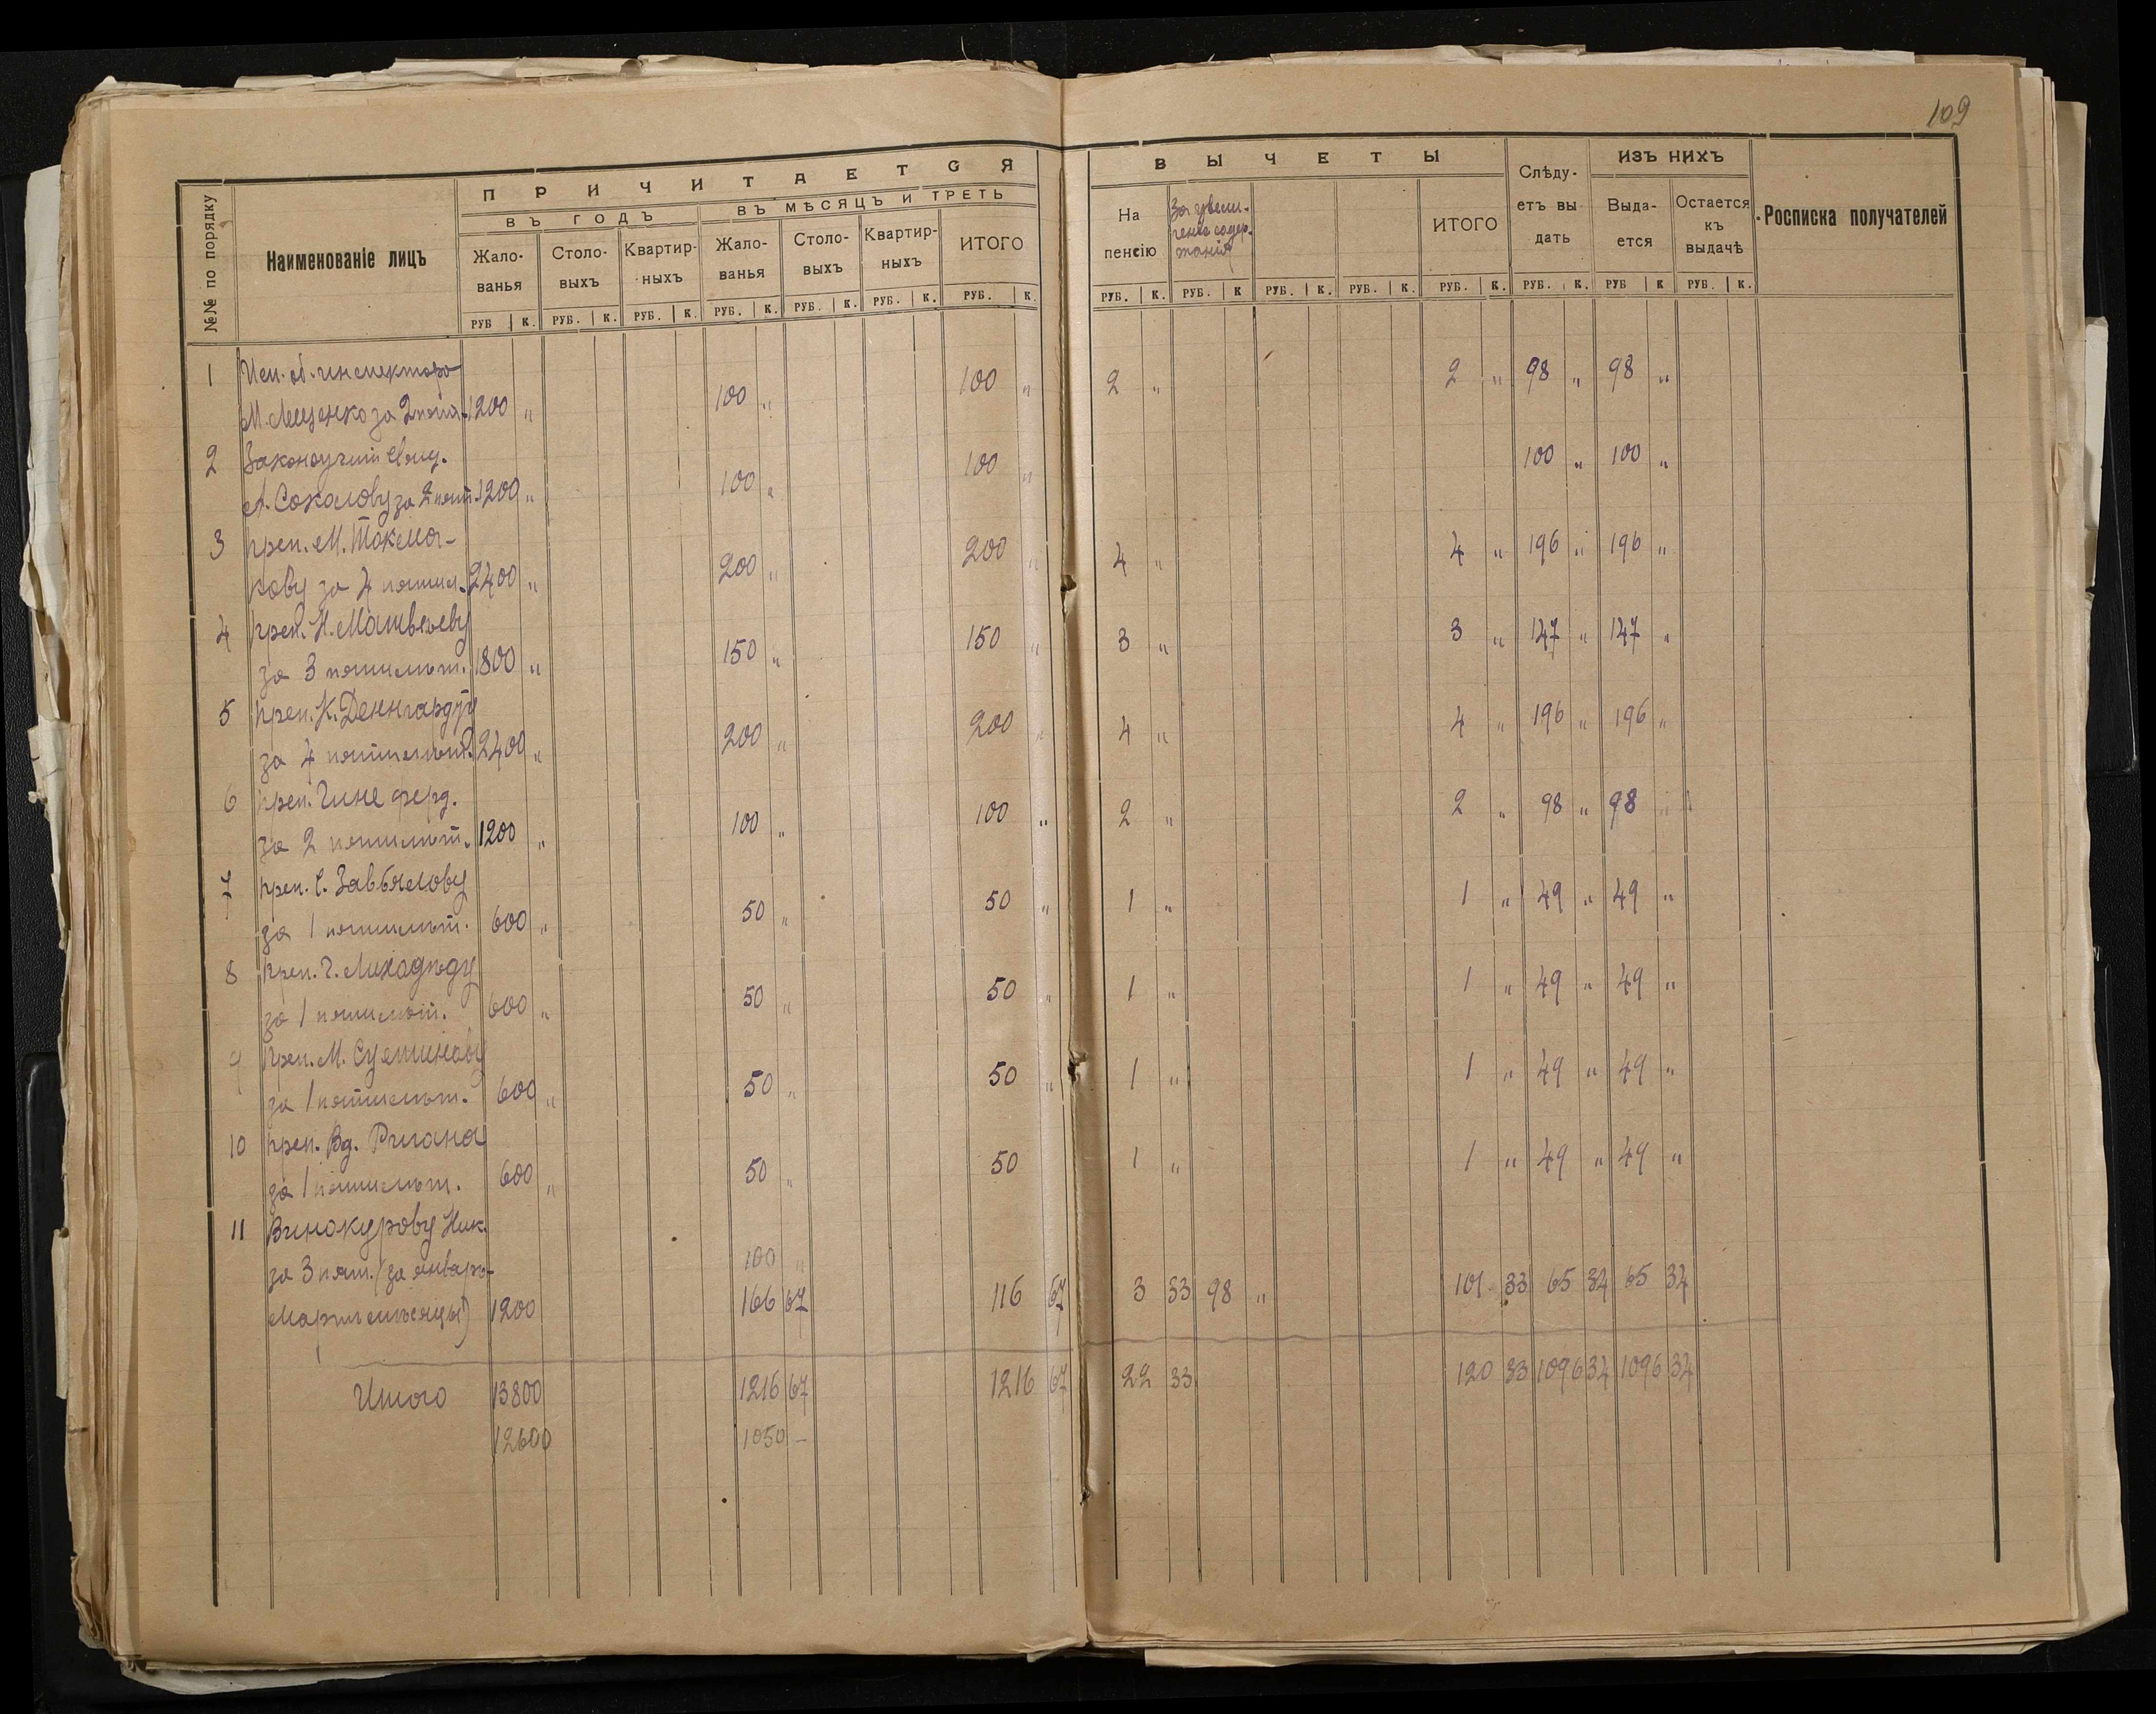 109
П Р И Ч И Т А Е Т С Я
В Ы Ч Е Т Ы
ИЗЪ НИХЪ
№№ по порядку
Наименованіе лицъ
ВЪ ГОДЪ
ВЪ МѢСЯЦЪ И ТРЕТЬ
Жало-ванья
Столо-выхъ
Квартир-ныхъ
Жало-ванья
Столо-выхъ
Квартир-ныхъ
ИТОГО
На пенсію
За увели-ченіе содер-жанія
ИТОГО
Слѣду-етъ вы дать
Выда-ется
Остается къ выдачѣ
Росписка получателей
РУБ К. РУБ. К. РУБ. К. РУБ. К. РУБ. К. РУБ. К. РУБ. К. РУБ. К. РУБ. К РУБ. К. РУБ. К. РУБ. К. РУБ. К. РУБ К РУБ. К.
1 Исп. об. инспектора 100 „ 2 „ 2 „ 98 „ 98 „
М. Лещенко за 2 1200 „ 100 „
2 Законоучит. Свящ. 100 „ 100 „ 100 „
А. Соколову за 2 пят. 1200 „ 100 „
3 преп. М. Токма- 200 „ 4 „ 4 „ 196 „ 196 „
кову за 4 пятил. 2400 „ 200 „
4 преп. Н. Матвѣеву 150 „ 3 „ 3 „ 147 „ 147 „
за 3 пятилѣт. 1800 „ 150 „
5 преп. К. Деннгардту 200 „ 4 „ 4 „ 196 „ 196 „
за 4 пятилѣт. 2400 „ 200 „
6 преп. Гине Ферд. 100 „ 2 „ 2 „ 98 „ 98 „
за 2 пятилѣт. 1200 „ 100 „
7 преп. С. Завьялову 50 „ 1 „ 1 „ 49 „ 49 „
за 1 пятилѣт. 600 „ 50 „
8 преп. Г. Лиходѣду 50 „ 1 „ 1 „ 49 „ 49 „
за 1 пятилѣт. 600 „ 50 „
9 преп. М. 50 „ 1 „ 1 „ 49 „ 49 „
за 1 пятилѣт. 600 „ 50 „
10 преп. Вд. 50 1 „ 1 „ 49 „ 49 „
за 1 пятилѣт. 600 „ 50 „
11 Винокурову Ник.
за 3 пят. (за январь- 100 „
Мартъ мѣсяцы) 1200 166 67 116 67 3 33 98 „ 101 33 65 34 65 34
Итого 13800 1216 67 1216 67 22 33 120 33 1096 34 1096 34
12600 1050 –